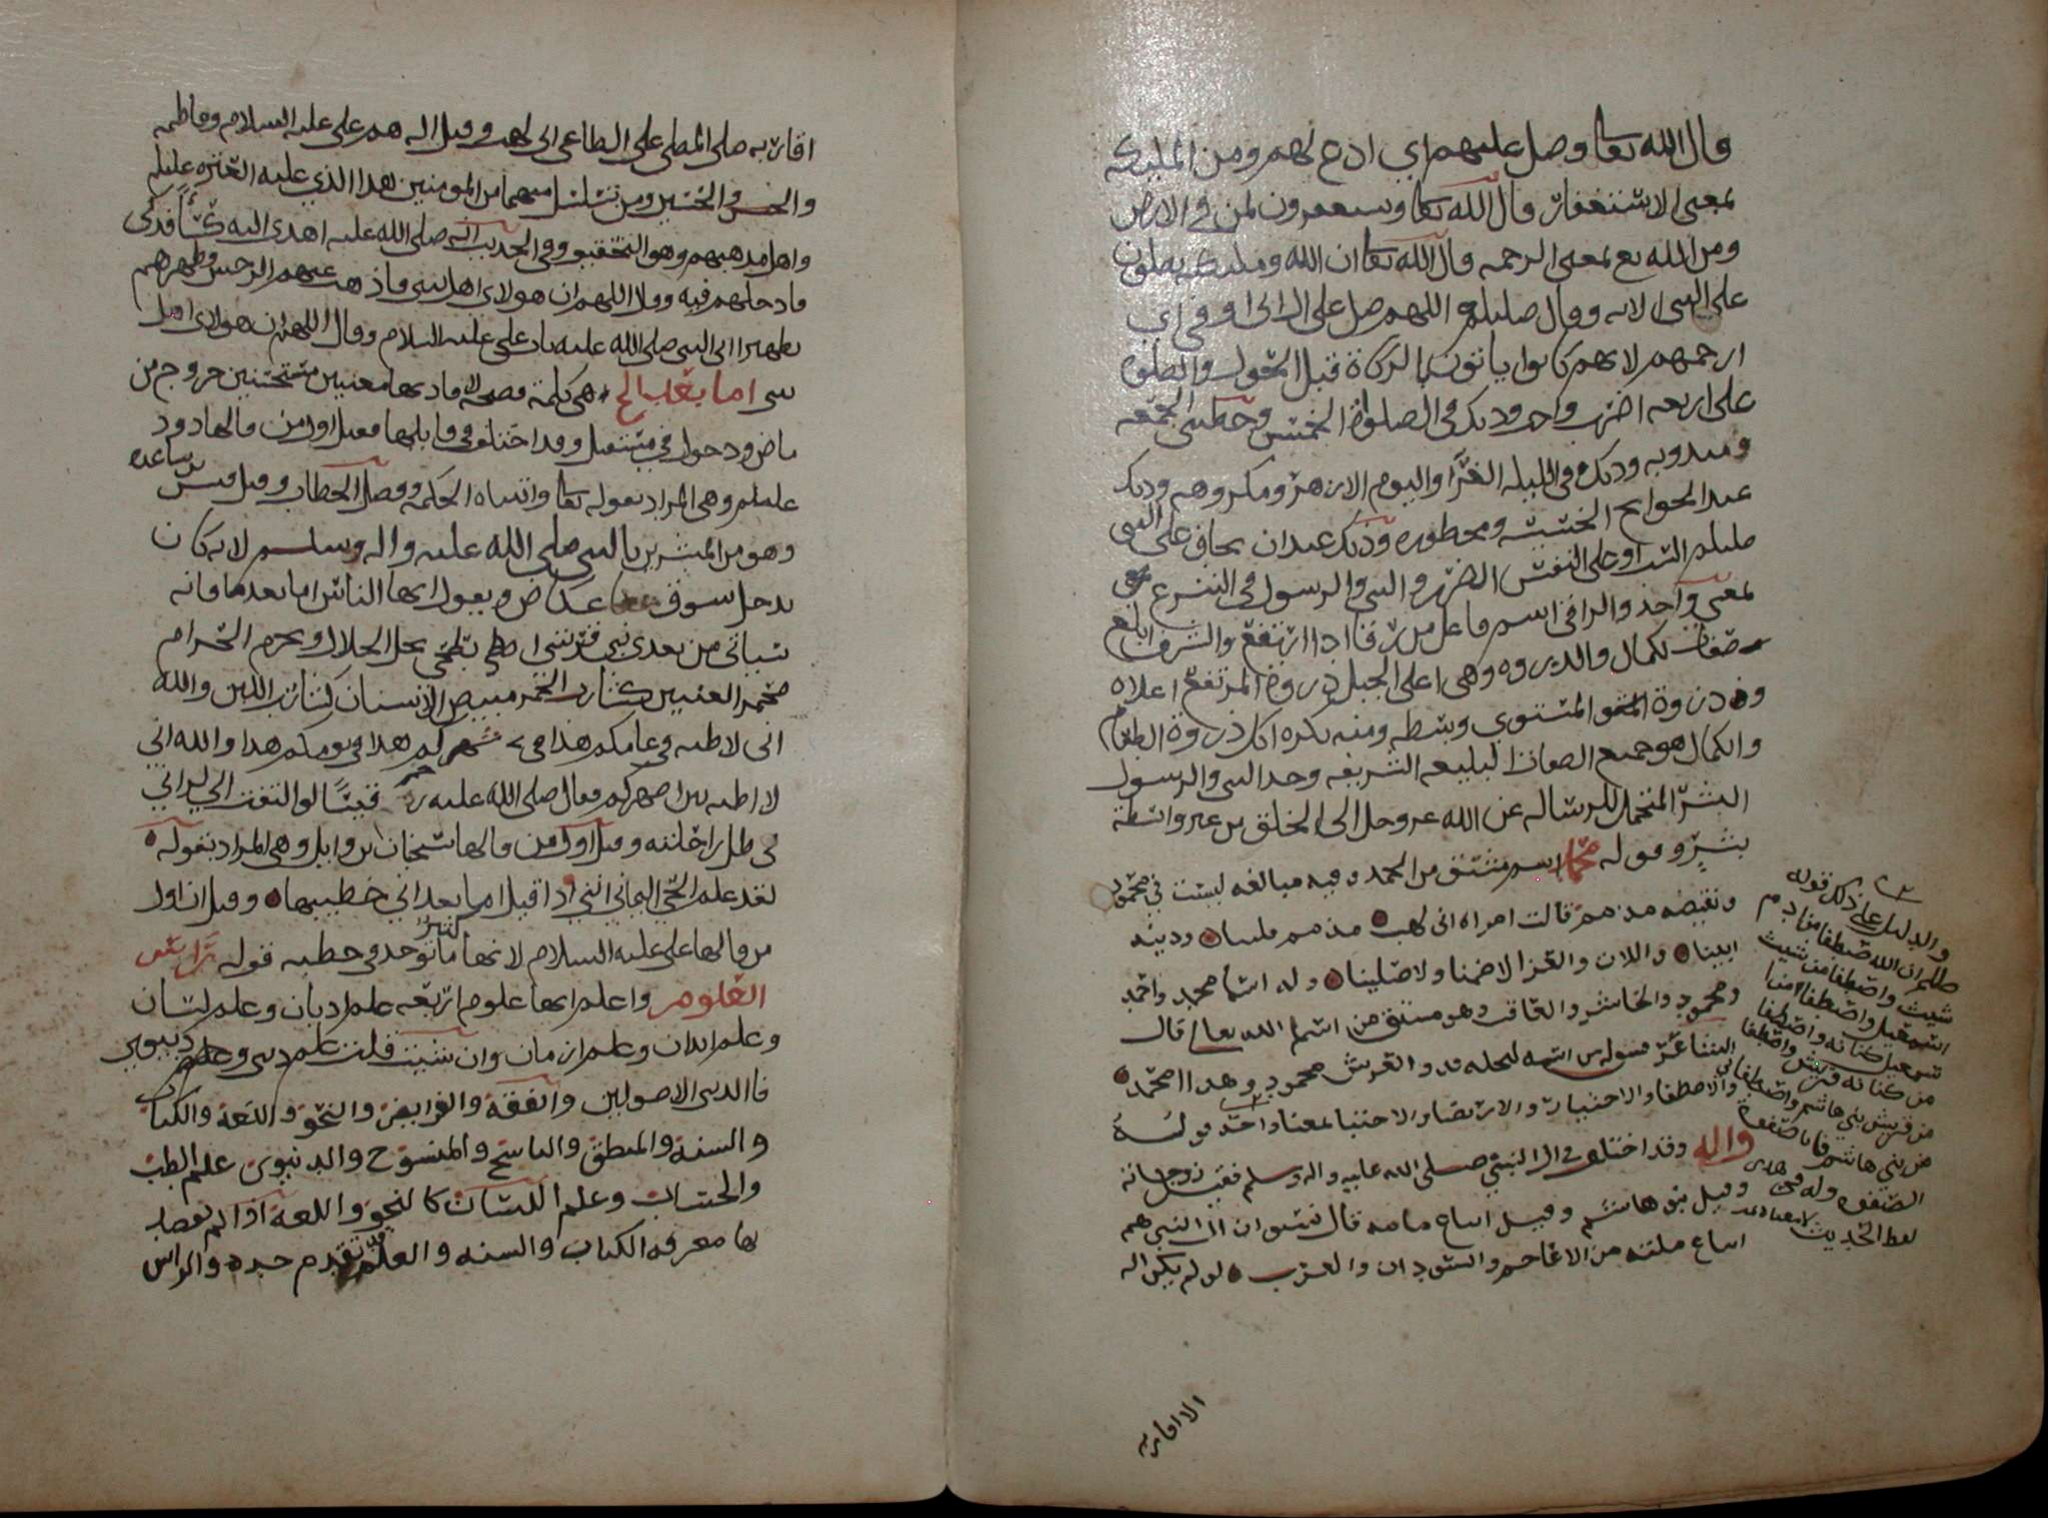 قال الله تعا وصل عليهم اي ادع لهم ومن المليكه
بمعنى الاستغفار قال الله تعا ويستغفرون لمن في الارض
ومن الله تع بمعنى الرحمه قال الله تعا ان الله ومليكته يصلون
على النبي الايه وقال صللم اللهم صل على ال ابي اوفى اي
ارحمهم لانهم كانوا ياتون بالزكاة قبل الحول والصلوه
على اربعه اضرب واجب وذلك في الصلوات الخمس وخطبتي الجمعه
ومندوبه وذلك في الليله الغرآ واليوم الازهر ومكروهه وذلك
عند الحوايج الخسيسه ومحظوره وذلك عند ان يخاف على النبي
صللم السب او على النفس الضرر والنبي والرسول في الشرع
بمعنى واحد والراقي اسم فاعل من رقا اذا ارتفع والشرف ابلغ
صفات الكمال والذروه وهي اعلى الجبل ذروة المرتفع اعلاه
وذروة المستوي وسطه ومنه يكره اكل ذروة الطعام
والكمال هو جميع الصفات البليغه الشريفه وحد النبي والرسول
البشر المتحمل للرسالة عن الله عز وجل الى الخلق من غير واسطة
بشر وقوله محمد اسم مشتق من الحمد وفيه مبالغه ليست في محمود
ونقيضه مذمم قالت امراة ابي لهب مذمم قلينا ودينه
ابينا واللات والعزا لاضمنا ولا صلينا وله اسما محمد واحمد
ومحمود والحاشر والعاقب وهو مشتق من اسما الله تعالى قال
الشاعر وشق له من اسمه ليجله فذو العرش محمود وهذا محمد
والاصطفا والاختيار والارتضا والاجتبا بمعنا واحد قوله
واله وقد اختلف في ال النبي صلى الله عليه واله وسلم فقيل زوجاته
وقيل بنو هاشم وقيل اتباع ملته قال نشوان ال النبي هم
اتباع ملته من الاعاجم والسودان والعرب لو لم يكن اله
والدليل على ذلك قوله
صللم ان الله اصطفا من ادم
شيث واصطفا من شيث
اسمعيل واصطفا من
اسمعيل كنانه واصطفا
من كنانه قريش واصطفا
من قريش بني هاشم واصطفاني
من بني هاشم فانا صفوة
الصفوه
لفظ الحديث
الا اقاربه
اقاربه صلى المصلي على الطاغي ابي لهب وقيل اله هم علي عليه السلام وفاطمه
والحسن والحسين ومن تنسل منهما من المومنين هذا الذي عليه العتره عليلم
واهل مذهبهم وهو التحقيق وفي الحديث انه صلى الله عليه اهدي اليه كسآ فدكي
فادخلهم فيه وقال اللهم ان هولاي اهل بيتي فاذهب عنهم الرجس وطهرهم
تطهيرا الى النبي صلى الله عليه باب علي عليه السلام وقال اللهم ان هولاي اهل
بيتي اما بعد الخ هي كلمة فصيحه لافادتها معنيين مستحسنين خروج من
ماض ودخول في مستقبل وقد اختلف في قايلها فقيل اول من قالها داود
عليلم وهي المراد بقوله تعا واتيناه الحكمه وفصل الخطاب وقيل قس بن ساعده
وهو من المبشرين بالنبي صلى الله عليه واله وسلم لانه كان
يدخل سوق عكاض ويقول ايها الناس اما بعد فانه
سياتي من بعدي نبي قرشي ابطحي يحل الحلال ويحرم الحرام
محمر العينين كشارب الخمر مبيض الاسنان كشارب اللبن والله
اني لاظنه في عامكم هذا في شهركم هذا في يومكم هذا والله اني
لا اظنه بين اظهركم فقال صلى الله عليه رحم قسًا لو التفت الي لراني
في ظل راحلته وقيل اول من قالها سحبان بن وايل وهي المراد بقوله
لقد علم الحي اليماني انني اذا قيل اما بعد اني خطيبها وقيل ان اول
من قالها علي عليه السلام لانها كثيرًا ما توجد في خطبه قوله راس
العلوم واعلم انها علوم اربعه علم اديان وعلم لسان
وعلم ابدان وعلم ازمان وان شيت قلت علم ديني وعلم دنيوي
فالديني الاصولين والفقه والفرايض والنحو واللغة والكتاب
والسنه والمنطق والناسخ والمنسوح والدنيوي علم الطب
والحساب وعلم اللسان كالنحو واللغه اذا لم يقصد
بها معرفه الكتاب والسنه والعلم تقدم حده والراس